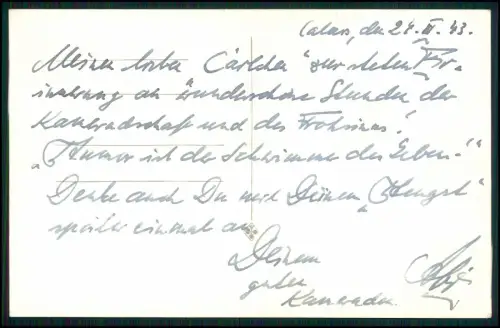 Calais, den 24. II. 43.
Meinem lieben Carlchen zur steten Er-
innerung an wunderschöne Stunden der
Kameradschaft und des Frohsinns!
"Humor ist der Schwimmer des Lebens!"
Denke auch Du mit Deinem "Hengst"
später einmal an
Deinen
guten
Kameraden